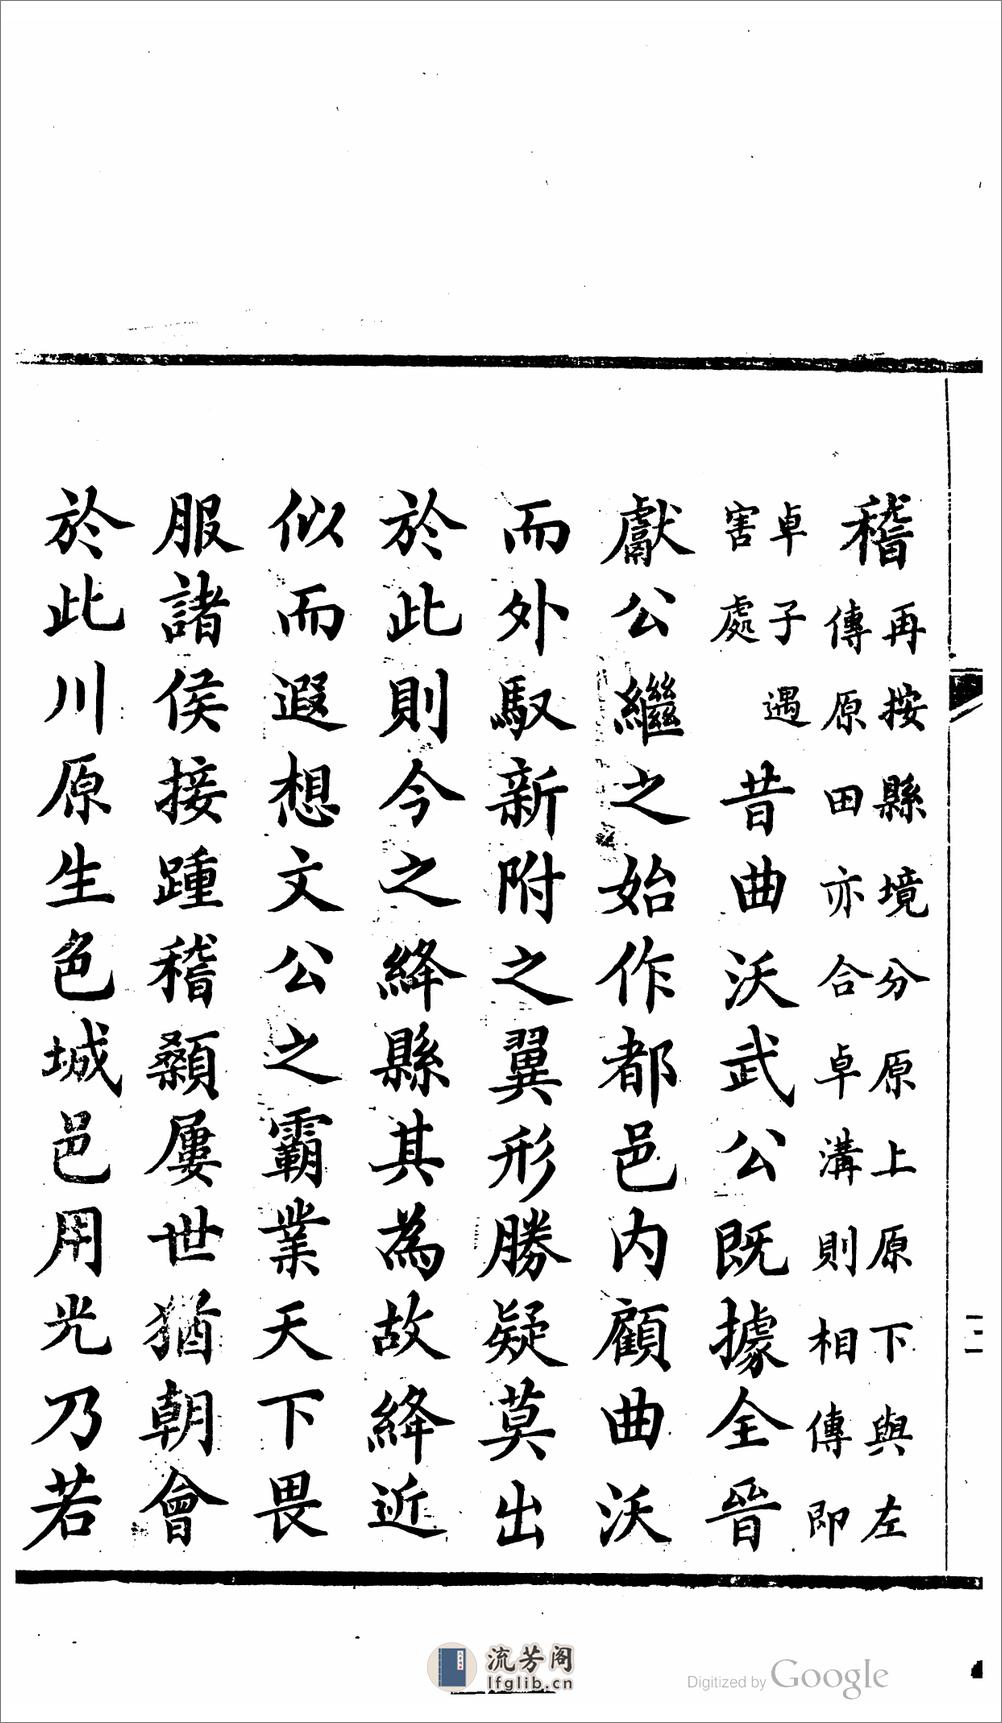 稽再按縣境分原上原下與左
傳原田亦合卓溝則相傳即
卓子遇
害處昔曲沃武公既據全晉
獻公繼之始作都邑內顧曲沃
而外馭新附之翼形勝疑莫出
於此則今之絳縣其為故絳近
似而遐想文公之霸業天下畏
服諸侯接踵稽顙屢世猶朝會
於此川原生色城邑用光乃若
二
流芳阁
lfglib.cn
Digitized by Google